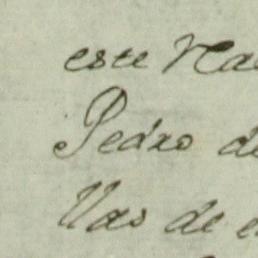 este Na
Pedro de
Vas de e